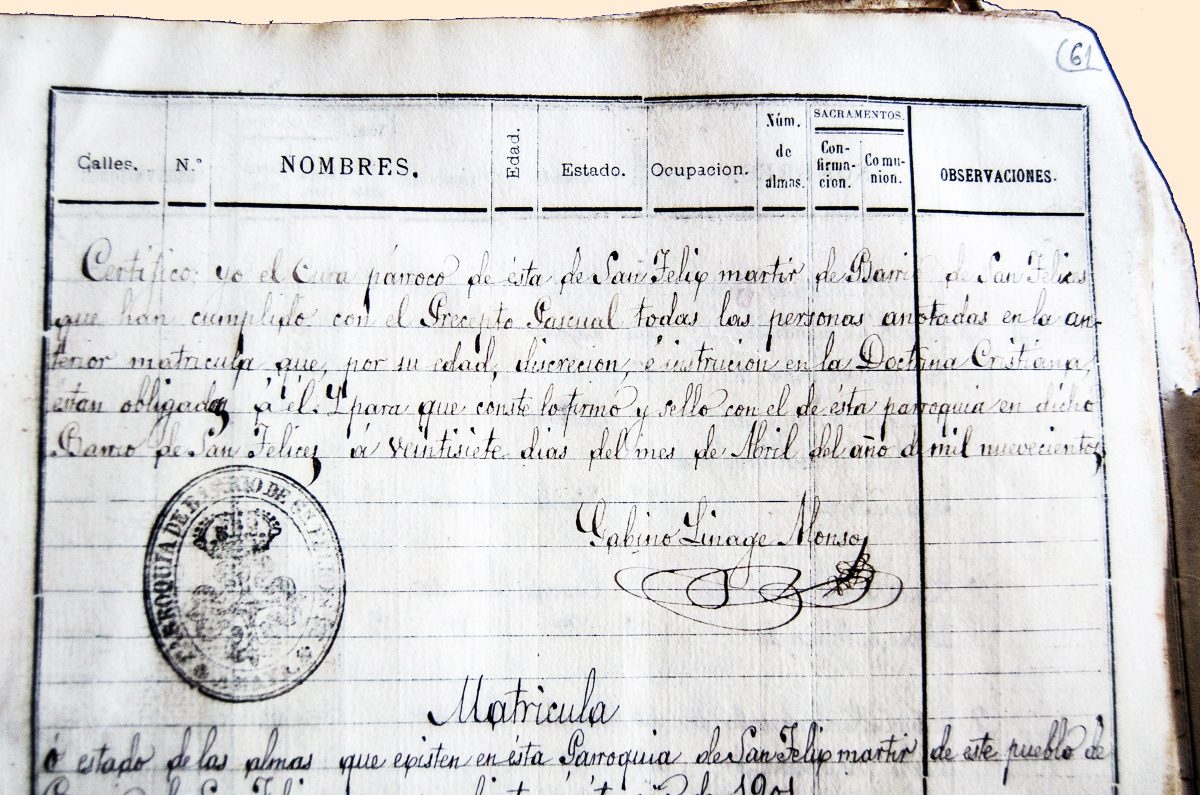 (61
Calles. N.° NOMBRES. Edad. Estado. Ocupacion. Núm. de almas. SACRAMENTOS. Confirmacion. Comunion. OBSERVACIONES.
Certifico: yo el Cura párroco de ésta de San Felix martir de Barrio de San Felices
que han cumplido con el Precepto Pascual todas las personas anotadas en la an-
terior matricula que, por su edad, discrecion, é instrucion en la Doctrina Cristiana,
están obligadas á él. Y para que conste lo firmo y sello con el de ésta parroquia en dicho
Barrio de San Felices á veintisiete dias del mes de Abril del año de mil nuevecientos
PARROQUIA DE BARRIO DE
Gabino Linage Alonso
Matricula
ó estado de las almas que existen en ésta Parroquia de San Felix martir de este pueblo de
de San Felices de 1901